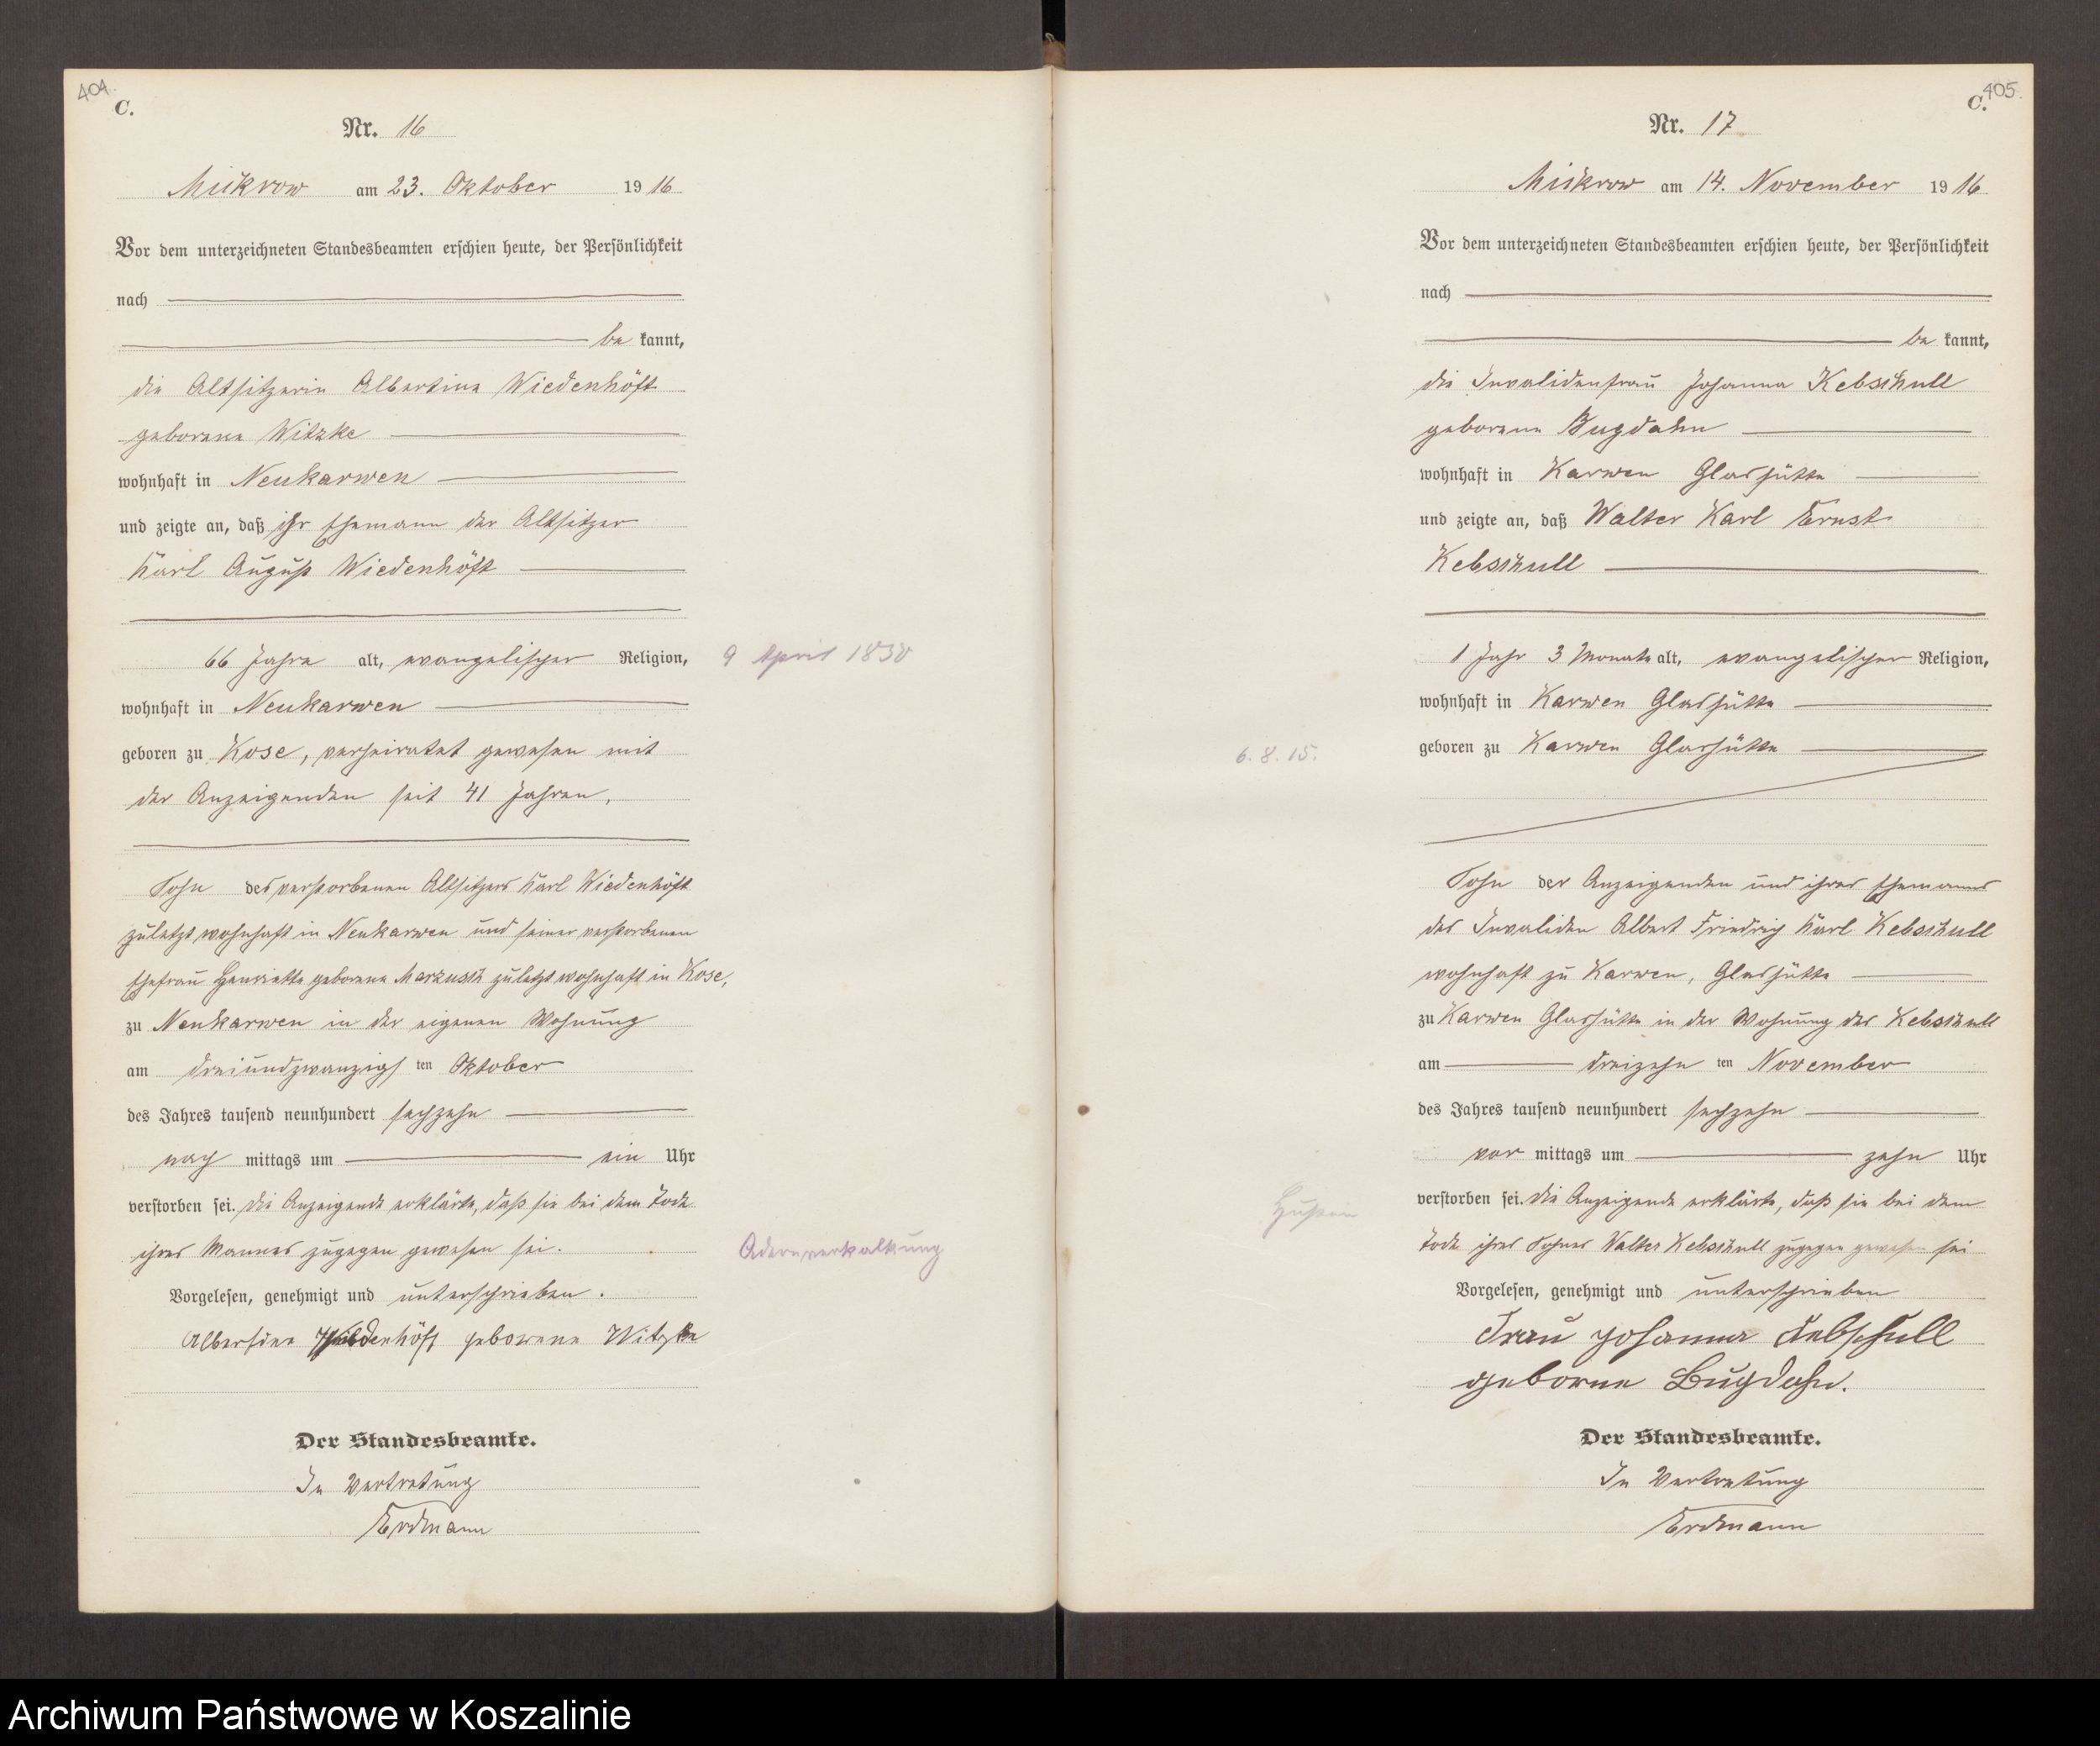 404.
C.
Nr. 16
Mickrow am 23. Oktober 1916
Vor dem unterzeichneten Standesbeamten erschien heute, der Persönlichkeit
nach
be kannt,
die Altsitzerin Albertine Wiedenhöft
geborene Witzke
wohnhaft in Neukarwen
und zeigte an, daß ihr Ehemann der Altsitzer
Karl August Wiedenhöft
66 Jahre alt, evangelischer Religion,
9 April 1850
wohnhaft in Neukarwen
geboren zu Kose, verheiratet gewesen mit
der Anzeigenden seit 41 Jahren,
Sohn des verstorbenen Altsitzers Karl Wiedenhöft
zuletzt wohnhaft in Neukarwen und seiner verstorbenen
Ehefrau Henriette geborene Marzusch zuletzt wohnhaft in Kose,
zu Neukarwen in der eigenen Wohnung
am dreiundzwanzigs ten Oktober
des Jahres tausend neunhundert sechzehn
nach mittags um ein Uhr
verstorben sei. Die Anzeigende erklärte, daß sie bei dem Tode
ihres Mannes zugegen gewesen sei.
Adernverkalkung
Vorgelesen, genehmigt und unterschrieben.
Albertine Wiedenhöft geborene Witzke
Der Standesbeamte.
In Vertretung
Erdmann
405.
C.
Nr. 17
Mickrow am 14. November 1916
Vor dem unterzeichneten Standesbeamten erschien heute, der Persönlichkeit
nach
be kannt,
die Invalidenfrau Johanna Kebschull
geborene Bugdahn
wohnhaft in Karwen Glashütte
und zeigte an, daß Walter Karl Ernst
Kebschull
1 Jahr 3 Monate alt, evangelischer Religion,
wohnhaft in Karwen Glashütte
geboren zu Karwen Glashütte
6. 8. 15.
Sohn der Anzeigenden und ihres Ehemanns
des Invaliden Albert Friedrich Karl Kebschull
wohnhaft zu Karwen, Glashütte
zu Karwen Glashütte in der Wohnung des Kebschull
am dreizehn ten November
des Jahres tausend neunhundert sechzehn
vor mittags um zehn Uhr
verstorben sei. Die Anzeigende erklärte, daß sie bei dem
Husten
Tode ihres Sohnes Walter Kebschull zugegen gewesen sei
Vorgelesen, genehmigt und unterschrieben
Frau Johanna Kebschull
geborne Bugdahn.
Der Standesbeamte.
In Vertretung
Erdmann
Archiwum Państwowe w Koszalinie